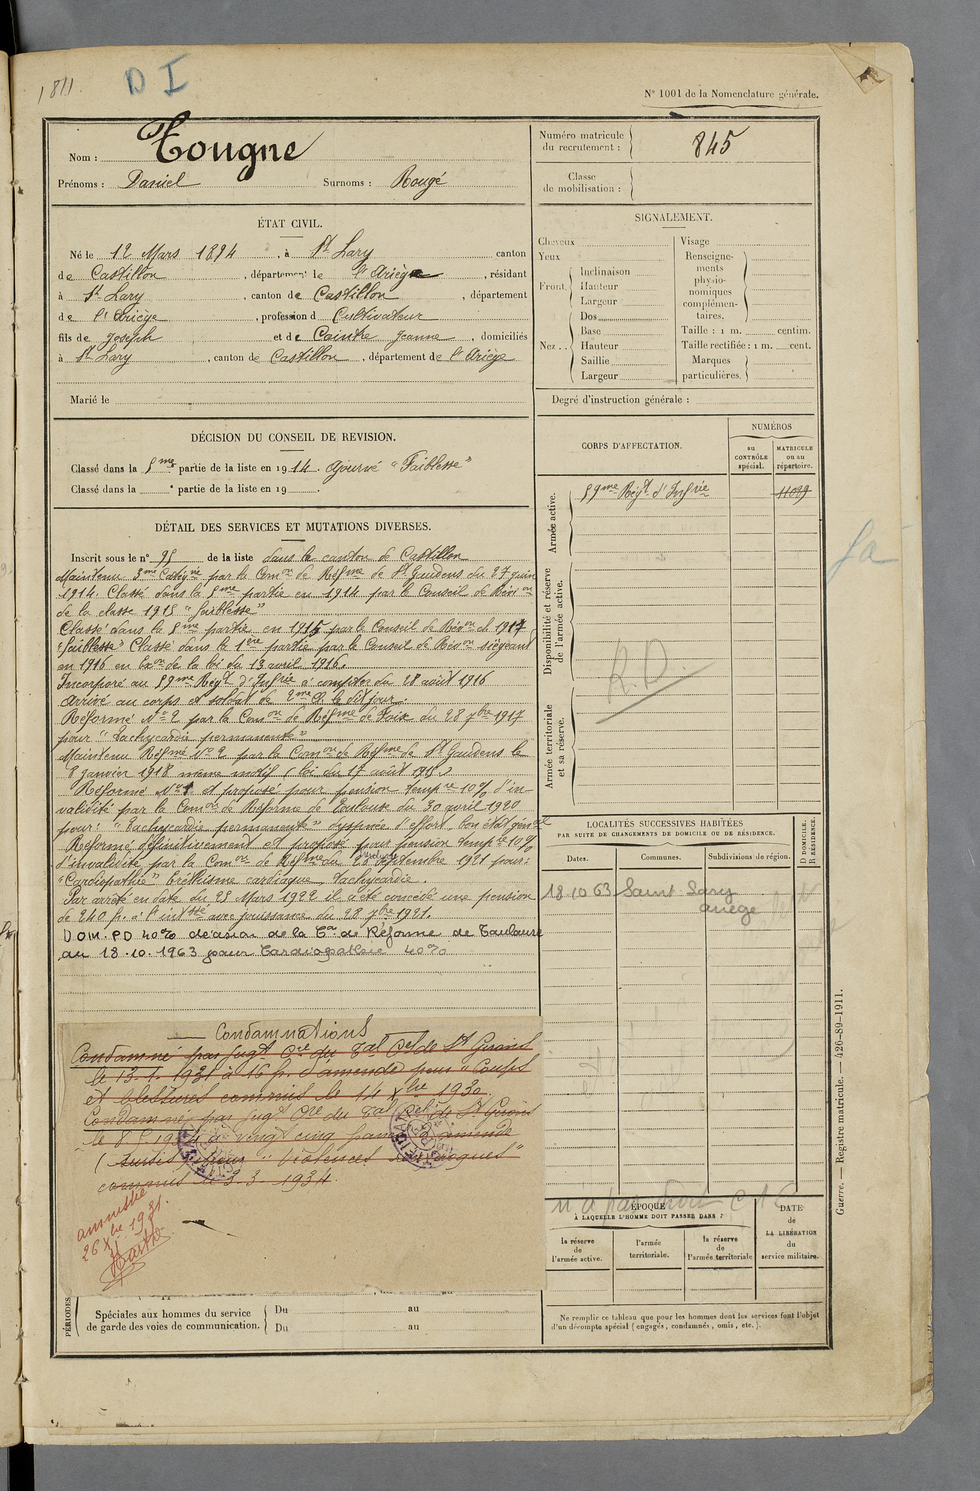 1811.
D I
N° 1001 de la Nomenclature générale.
Nom : Tougne
Prénoms : Daniel Surnoms : Rougé
Numéro matricule du recrutement : 845
Classe de mobilisation :
ÉTAT CIVIL.
Né le 12 Mars 1894, à St Lary canton
de Castillon, département de l'Ariège, résidant
à St Lary, canton de Castillon, département
de l'Ariège, profession d Cultivateur
fils de Joseph et de Caintre Jeanne, domiciliés
à St Lary, canton de Castillon, département de l'Ariège
Marié le
SIGNALEMENT.
Cheveux
Yeux
Front. Inclinaison
Hauteur
Largeur
Nez .. Dos
Base
Hauteur
Saillie
Largeur
Visage
Renseigne-
ments
physio-
nomiques
complémen-
taires.
Taille : 1 m. centim.
Taille rectifiée : 1 m. cent.
Marques
particulières.
Degré d'instruction générale :
DÉCISION DU CONSEIL DE REVISION.
Classé dans la 5me partie de la liste en 1914. Ajourné "Faiblesse"
Classé dans la e partie de la liste en 19 .
DÉTAIL DES SERVICES ET MUTATIONS DIVERSES.
Inscrit sous le n° 95 de la liste dans le canton de Castillon
Maintenu par la Comon de Réfme de St Gaudens du 27 juin
1914. Classé dans la 5me partie en 1914 par le Conseil de Révon
de la classe 1915 "faiblesse"
Classé dans la 5me partie en 1915 par le Conseil de Révon cl 1917
"faiblesse" Classé dans la 1ère partie par le Conseil de Révon siégeant
en 1916 en Exon de la loi du 13 avril 1916.
Incorporé au 59me Régt d'Infrie à compter du 28 août 1916
Arrivé au corps et soldat de 2me Cl le dit jour
Réformé N° 2 par la Comon de Réfme de Foix du 28 7bre 1917
pour "Tachycardie permanente"
Maintenu Réfmé N° 2 par la Comon de Réfme de St Gaudens le
8 janvier 1918 même motif (loi du 17 août 1915)
Réformé N° 1 et proposé pour pension tempre 10% d'in
validité par la Comon de Réforme de Toulouse du 30 avril 1920
pour : "Tachycardie permanente" dyspnée d'effort, bon état général
Réformé définitivement et proposé pour pension tempre 10%
d'invalidité par la Comon de Réfme du 28 septembre 1921 pour :
"Cardiopathie" Eréthisme cardiaque tachycardie.
Par arrêté en date du 25 Mars 1922 il a été concédé une pension
de 240 fr. avec jouissance du 28 7bre 1921.
DOM. PD 40% décision de la Con de Réforme de Toulouse
du 18.10.1963 pour Cardiopathie 40%
Condamnations
Condamné par Jugt Cre du Tal Cel de St Girons
le 13.1.1931 à 16 fr. d'amende pour "Coups
et blessures commis le 14 Xbre 1930.
Condamné par Jugt Cre du Tal Cel de St Girons
le 8 1934 à vingt cinq francs d'amende
(sursis) pour "Violences"
commis le 3.3.1934.
amnistié
26 Xbre 1931.
CORPS D'AFFECTATION.
NUMÉROS
au CONTRÔLE spécial.
MATRICULE ou au répertoire.
Armée active.
59me Régt d'Infrie 11099
Disponibilité et réserve de l'armée active.
R.D.
Armée territoriale et sa réserve.
LOCALITÉS SUCCESSIVES HABITÉES
PAR SUITE DE CHANGEMENTS DE DOMICILE OU DE RÉSIDENCE.
D DOMICILE. R RÉSIDENCE.
Dates. Communes. Subdivisions de région.
18 10 63 Saint Lary
Ariège
n'a pas droit C 16
ÉPOQUE
À LAQUELLE L'HOMME DOIT PASSER DANS :
la réserve de l'armée active.
l'armée territoriale.
la réserve de l'armée territoriale
DATE de LA LIBÉRATION du service militaire.
PÉRIODES.
Spéciales aux hommes du service
de garde des voies de communication.
Du au
Du au
Ne remplir ce tableau que pour les hommes dont les services font l'objet
d'un décompte spécial (engagés, condamnés, omis, etc.).
Guerre. — Registre matricule. — 426-89-1911.